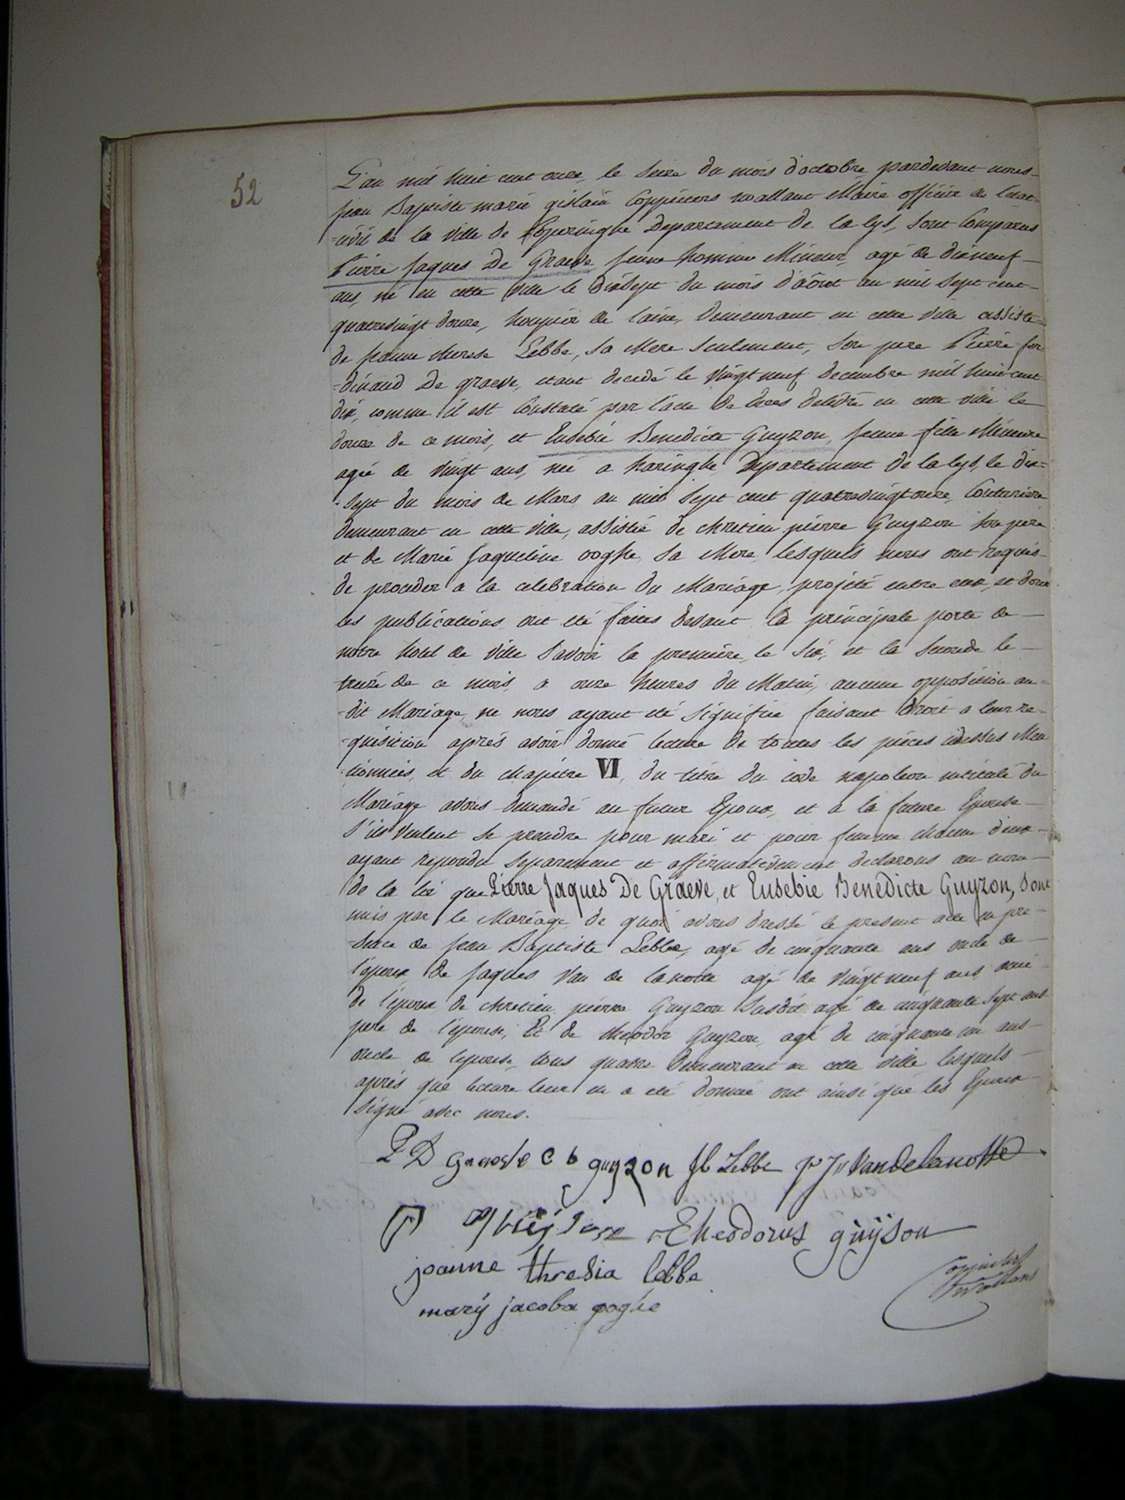 52
L'an mil huit cent onze, le seize du mois d'octobre pardevant nous
Jean Baptiste marie gislain Coppieters wallant Maire officier de l'etat-
-civil de la ville de Poperinghe Departement de la lys, sont Comparus
Pierre Jaques De Graeve jeune homme Mineur, agé de dixneuf-
ans, né en cette ville le dixsept du mois d'aôut an mil sept cent-
quatrevingt douze, houpier de laine, demeurant en cette ville assisté
de jeanne therese Lebbe, sa Mere seulement, son pere Pierre fer
-dinand De graeve, etant decedé le vingt neuf decembre mil huit cent
dix, comme il est Constaté par l'acte de deces delivré en cette ville le
douze de ce mois, et Eusebie Benedicte Guyzon, jeune fille Mineure
agée de vingt ans, née a haringhe Departement de la lys, le dix-
-sept du mois de Mars an mil sept cent quatrevingtonze, Couturière
demeurant en cette ville, assistée de chretien pierre Guyzon son père
et de Marie Jaqueline goghe, sa Mere, lesquels nous ont requis
de proceder a la celebration du Mariage, projeté entre eux, et dont
les publications ont été faites devant la principale porte de
notre hotel de ville savoir la première, le six, et la seconde le
treize de ce mois, a onze heures du Matin, aucune opposition au-
-dit Mariage, ne nous ayant été signifiée faisant droit a leur re-
-quisition aprés avoir donné lecture de toutes les pièces cidessus Men
-tionnées, et du chapitre VI, du titre du code napoleon intitulé du
Mariage avons demandé au futur Epoux, et a la future Epouse
s'ils veulent se prendre pour mari et pour femme chacun d'eux-
ayant repondu separement et affirmativement declarons au nom-
de la loi que Pierre Jaques De Graeve, et Eusebie Benedicte Guyzon, sont
unis par le Mariage, de quoi avons dressé le present acte en pre-
-sence de Jean Baptiste Lebbe, agé de cinquante ans oncle de
l'epoux de Jaques Van de lanotte agé de vingt neuf ans ami
de l'époux de chretien pierre Guyzon susdit agé de cinquante sept ans
pere de l'épouse, Et de theodor Guyzon, agé de cinquante un ans-
oncle de l'epouse, tous quatre demeurant en cette ville lesquels
aprés que lecture leur en a été donnée ont ainsi que les Epoux
signé avec nous.
P D Graeve e b guyzon JB Lebbe Jv Vandelanotte
Theodorus güÿson
joanne thresia lebbe
marÿ jacoba goghe